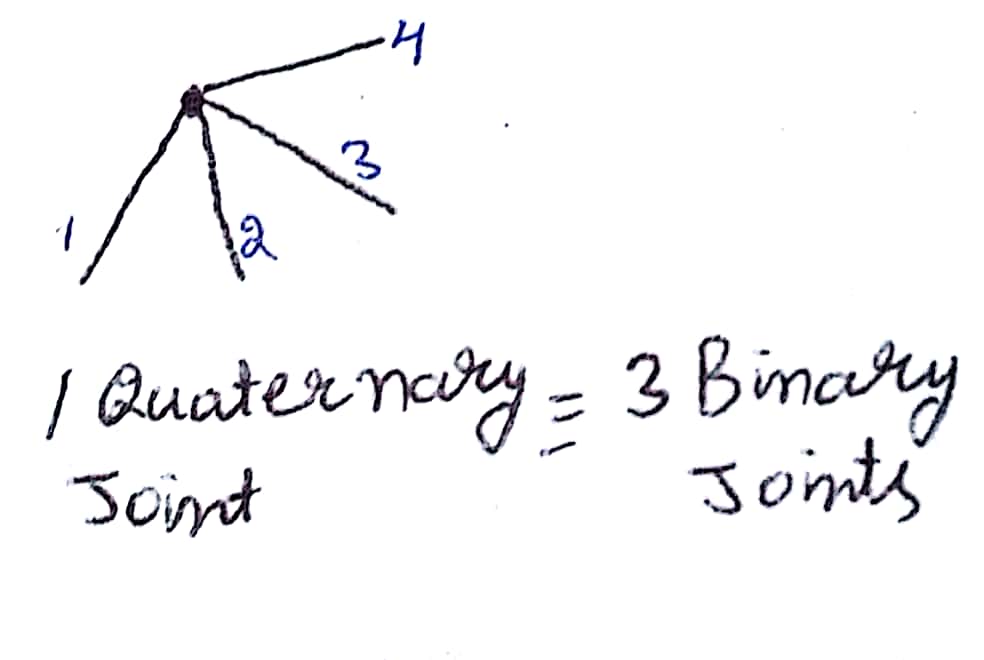 4
3
1
2
1 Quaternary = 3 Binary
Joint Joints